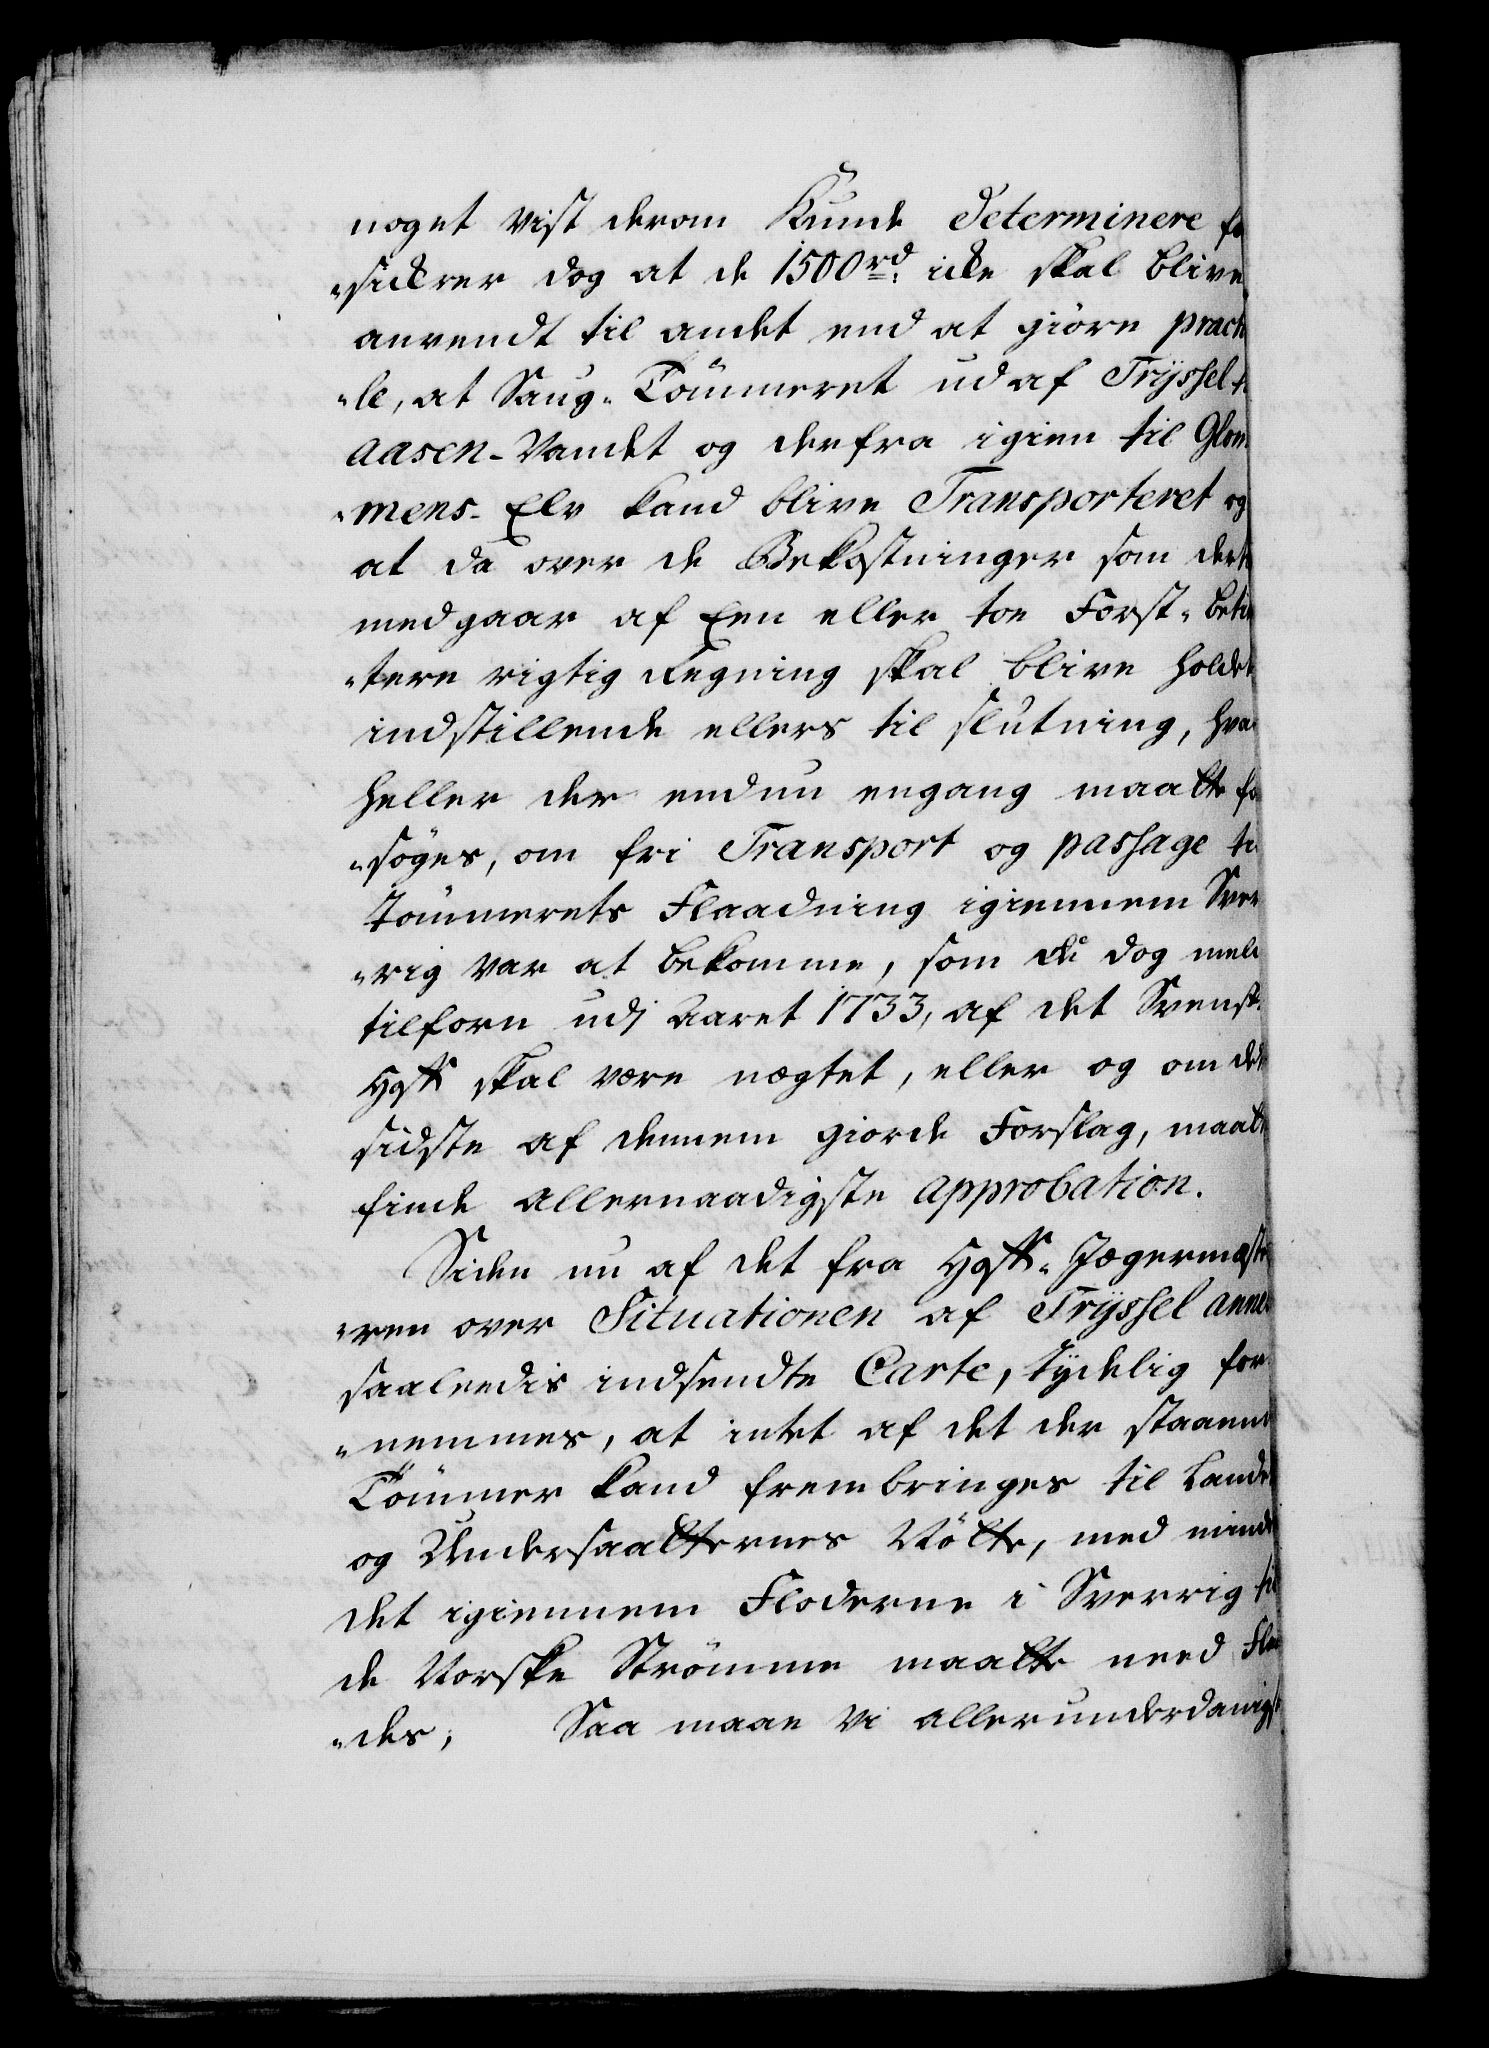 noget vist derom Kunde Determinere fo
"sickrer dog at de 1500rd. icke skal blive
anvendt til andet end at giöre pract
"le, at Saug-Tömmeret ud af Trÿssel t
Aasen-Vandet og derfra igien til Glom
"mens-Elv kand blive Transporteret og
at da over de Bekostninger som dert
medgaar af Een eller toe Forst-beti
"tere rigtig Regning skal blive holdet
indstillende ellers til slutning, hva
heller der endnu engang maatte fo
"söges, om fri Transport og passage ti
Tömmerets Flaadning igiennem Sver
"rig var at bekomme, som dog
tilforn udj Aaret 1733, af det Svensk
Hoff skal være nægtet, eller og om de
sidste af dennem giorde Forslag, maatt
finde allernaadigste approbation.
Siden nu af det fra Hoff-Jægermest
"ren over Situationen af Trÿssel Anne
saaleedis indsendte Carte, tÿdelig for
"nemmes, at intet af det der staaend
Tömmer kand frembringes til Lande
og Undersaatternes Nötte, med mind
det igiennem Floderne i Sverrig til
de Norske Strömme maatte need Fla
"des; Saa maae Vi allerunderdanigst